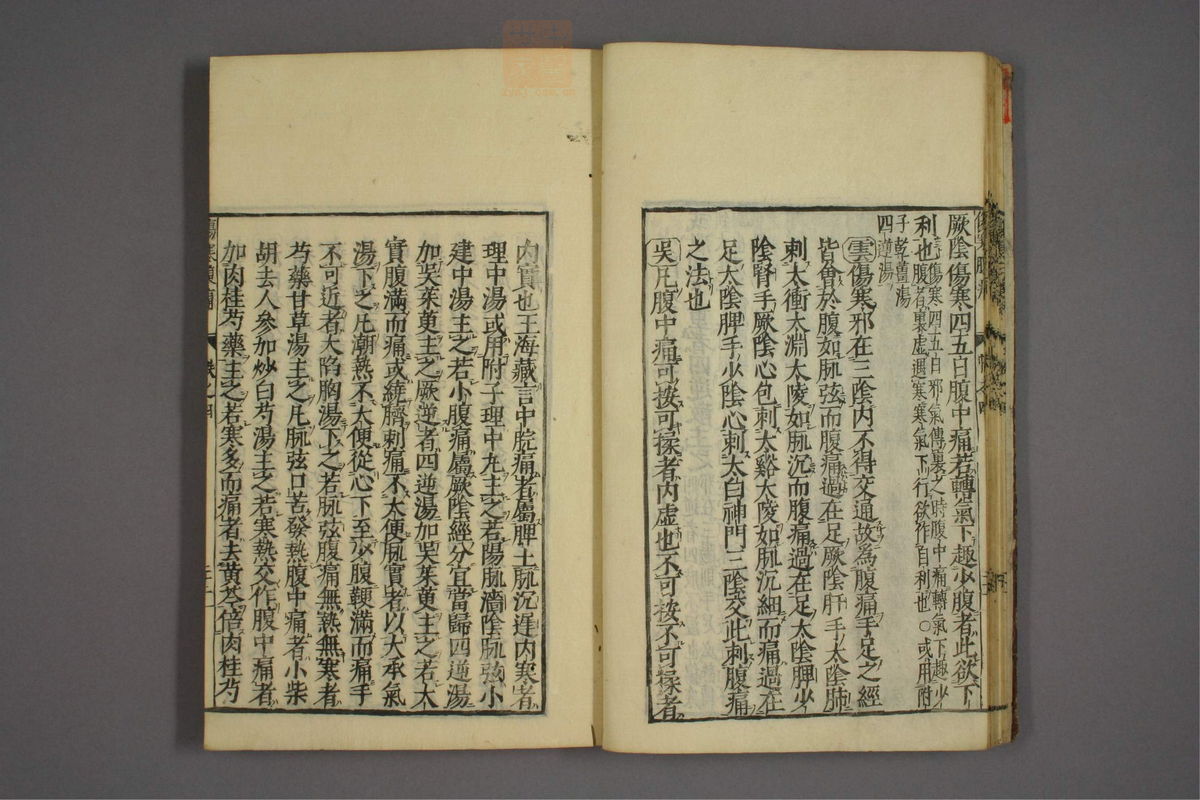 厥陰傷寒四五日腹中痛若轉氣下趣少腹者此欲下
利也
傷寒四五日邪氣傳裏之時腹中痛轉氣下趣少
腹者裏虛遇寒寒氣下行欲作自利也○或用附
子乾薑湯
四逆湯
雲傷寒邪在三陰内不得交通故為腹痛手足之經
皆會於腹如脉弦而腹痛過在足厥陰肝手太陰肺
刺太衝太淵太陵如脉沉而腹痛過在足太陰脾少
陰腎手厥陰心包刺太谿太陵如脉沉細而痛過在
足太陰脾手少陰心刺太白神門三陰交此刺腹痛
之法也
吳凡腹中痛可按可揉者内虛也不可按不可揉者
内實也王海藏言中脘痛者屬脾土脉沉遲内寒者
理中湯或用附子理中丸主之若陽脉濇陰脉弦小
建中湯主之若小腹痛屬厥陰經分宜當歸四逆湯
加吳茱萸主之厥逆者四逆湯加吳茱萸主之若大
實腹滿而痛或繞臍刺痛不大便脉實者以大承氣
湯下之凡潮熱不大便從心下至少腹鞕滿而痛手
不可近者大陷胸湯下之若脉弦腹痛無熱無寒者
芍藥甘草湯主之凡脉弦口苦發熱腹中痛者小柴
胡去人參加炒白芍湯主之若寒熱交作腹中痛者
加肉桂芍藥主之若寒多而痛者去黄芩倍肉桂芍